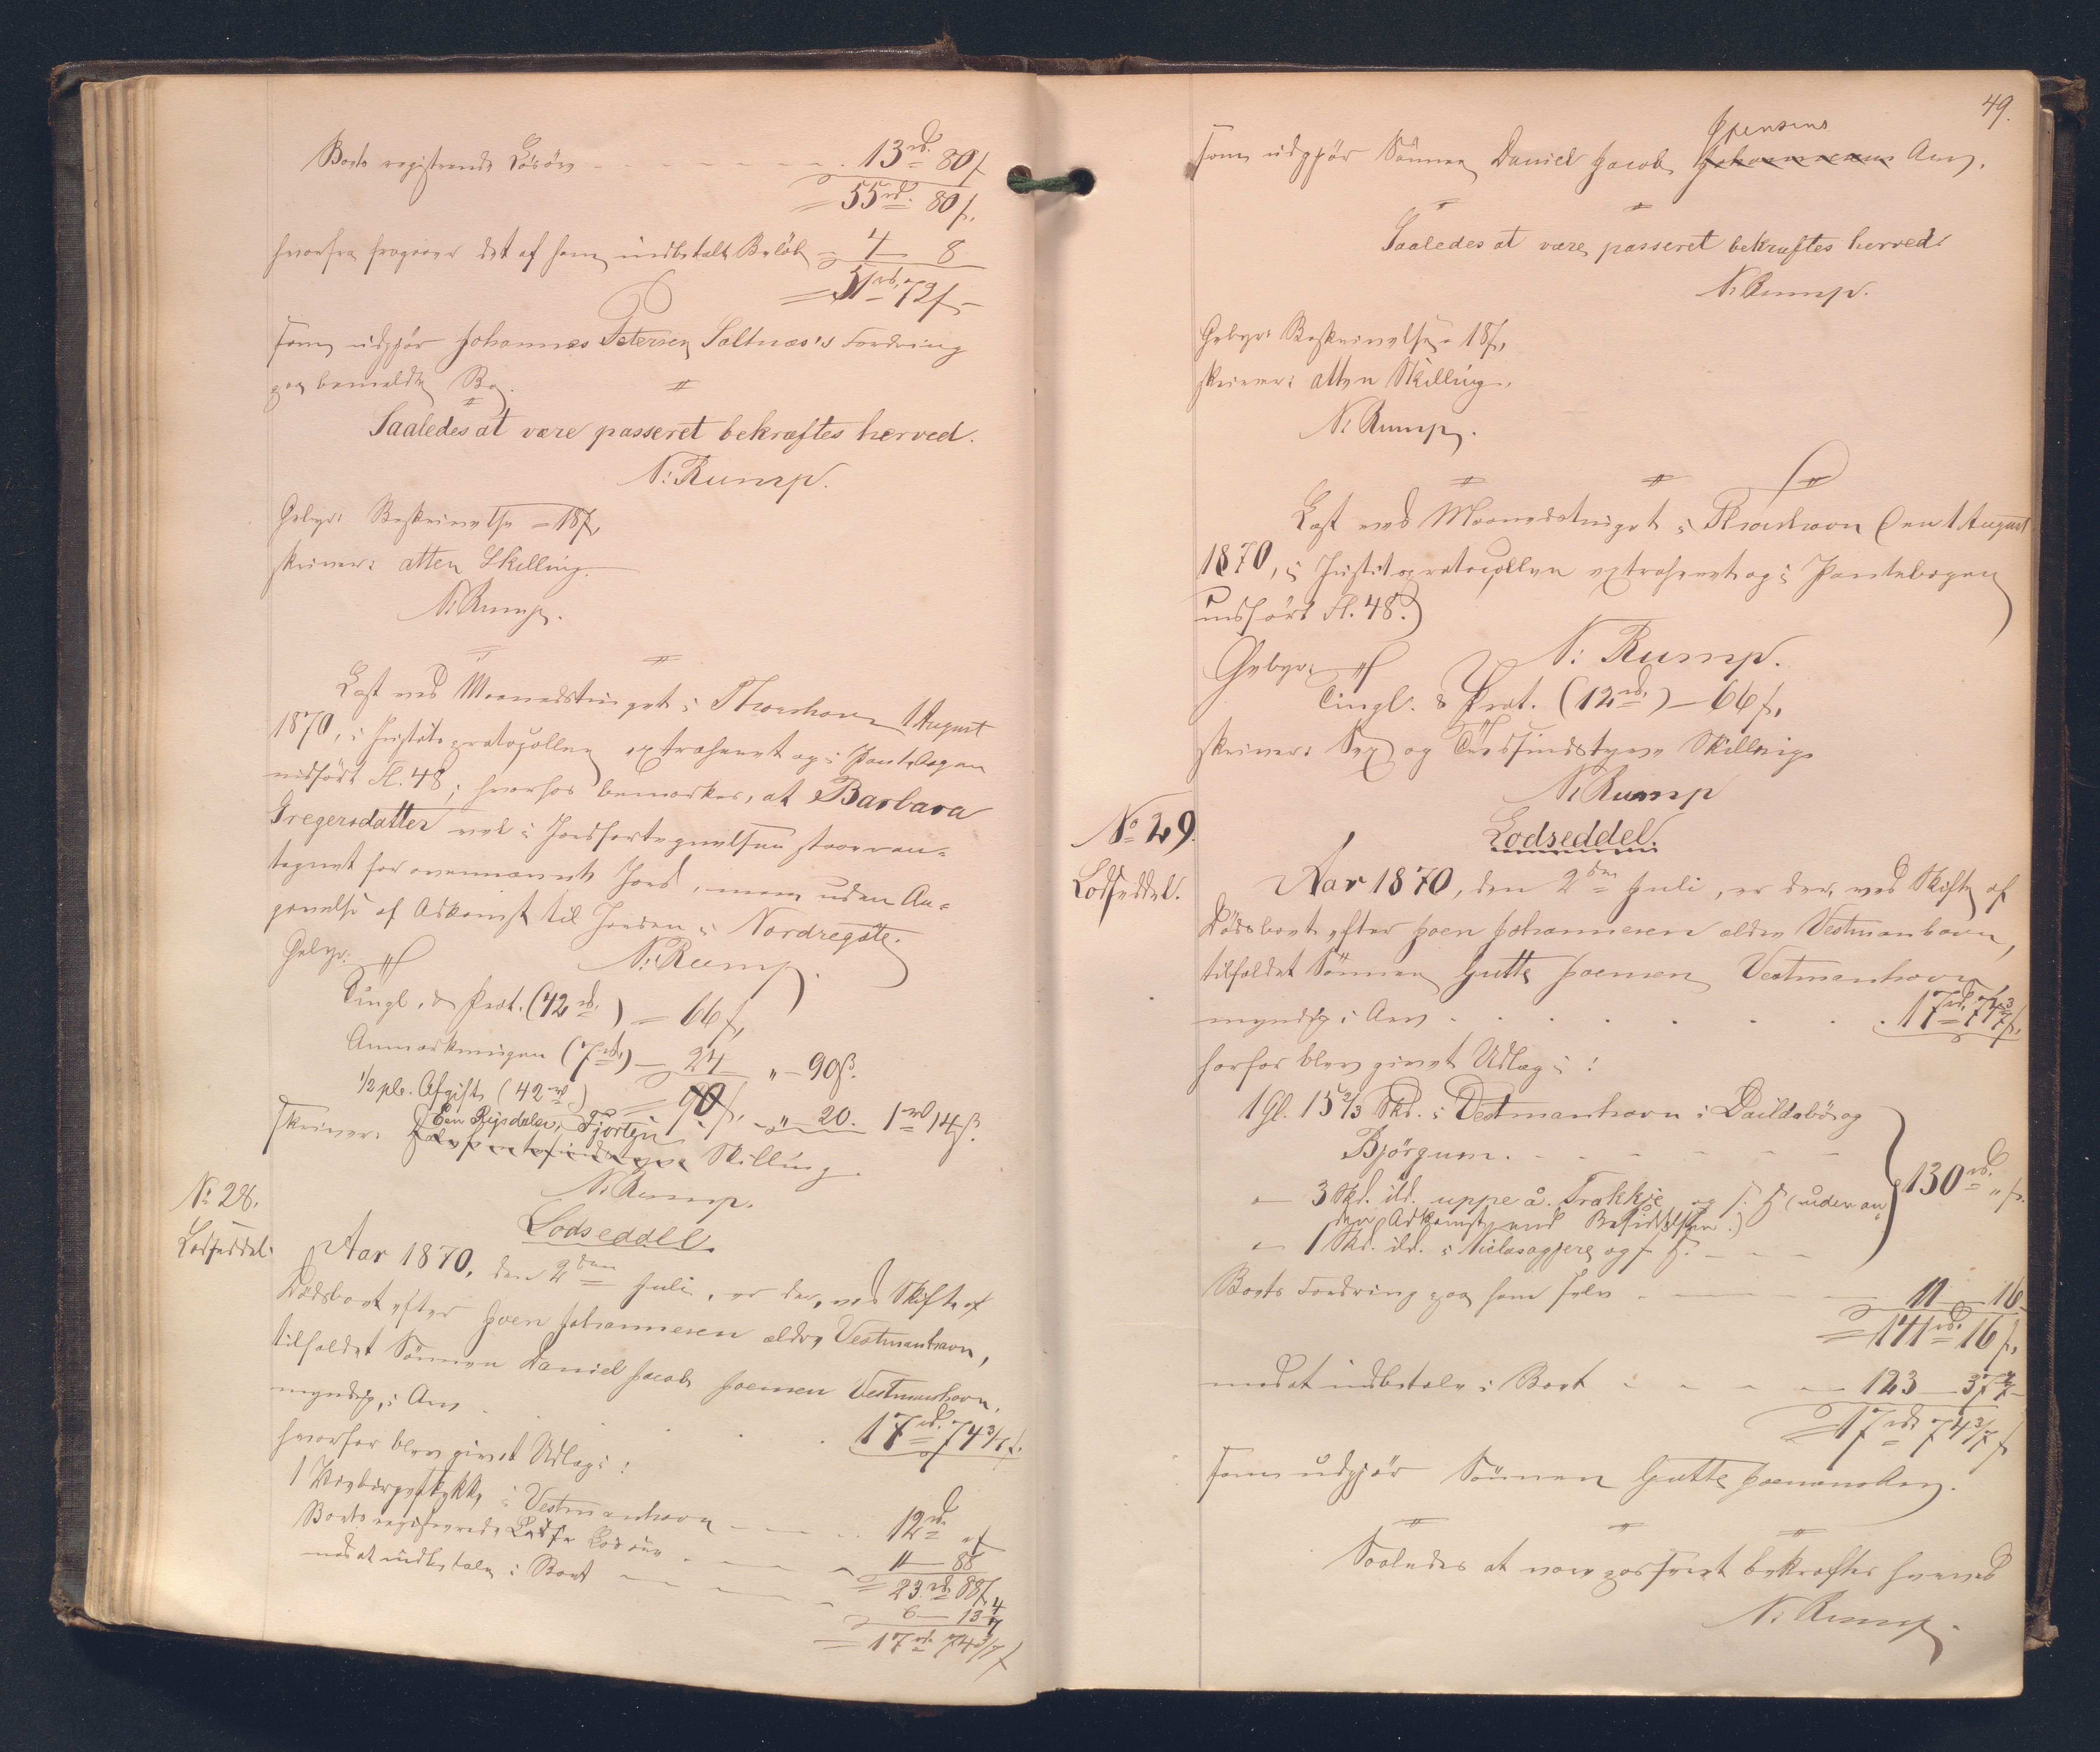 Boets registrerede Løsøre - - - - - - - 13 rd. 80 ſ
= 55 rd. 80 ſ.
hvorfra fragaaer det af ham indbetalte Beløb = 4 — 8
= 51 rd. 72 ſ
som udgjør Johannes Petersen Saltnæs's Fordring
paa bemeldte Bo.
Saaledes at være passeret bekræftes herved.
N: Rump.
Gebyr: Beskrivelse = 18 ſ,
skriver: atten Skilling.
N: Rump.
Læst ved Maanedstinget i Thorshavn 1 August
1870, i Justitsprotocollen extraheret og i Pantebogen
indført Fl. 48; hvorhos bemærkes, at Barbara
Gregersdatter vel i Jordfortegnelsen staaer an-
tegnet for ovennævnte Jord, men uden An-
givelse af Adkomst til Jorden i Nordregøte.
N: Rump.
Gebyr:
Tingl. & Prot. (42 rd.) = 66 ſ,
Anmærkningen (7 rd.) — 24 " — 90 ß.
1/2 pCt. Afgift (42 rd) = 90 ſ. " 20. 1 rd 14 ß.
Een Rigsdaler, Fjorten
skriver: Halvfemtesindstyve Skilling.
N: Rump.
No 28.
Lodseddel.
Lodseddel.
Aar 1870, den 2den Juli, er der, ved Skifte af
Dødsboet efter Joen Johannesen ældre Vestmanhavn,
tilfaldet Sønnen Daniel Jacob Joensen Vestmanhavn,
myndig, i Arv . . . . 17 rd. 74 3/7 ſ.
hvorfor blev givet Udlæg i:
1 i Vestmanhavn - - - 12 rd. " ſ
Boets registrerede Løsøre - - - 11 — 88
= 23 rd. 88 ſ,
mod at indbetale i Boet - - - 6 — 13 4/7
= 17 rd. 74 3/7 ſ
49.
Joensens
som udgjør Sønnen Daniel Jacob Johannesens Arv.
Saaledes at være passeret bekræftes herved.
N: Rump.
Gebyr: Beskrivelse = 18 ſ,
skriver: atten Skilling.
N: Rump.
Læst ved Maanedstinget i Thorshavn den 1 August
1870, i Justitsprotocollen extraheret og i Pantebogen
indført Fl. 48.
N: Rump.
Gebyr:
Tingl. & Prot. (12 rd.) — 66 ſ,
skriver: Sex og Tredsindstyve Skilling
N: Rump
No 29.
Lodseddel.
Lodseddel.
Aar 1870, den 2den Juli, er der, ved Skifte af
Dødsboet efter Joen Johannesen ældre Vestmanhavn,
tilfaldet Sønnen Gutte Joensen Vestmanhavn,
myndig i Arv . . . . . 17 rd. 74 3/7 ſ,
hvorfor blev givet Udlæg i:
1 Gl. 15 2/3 Skd. i Vestmanhavn i Daildabø og
Bjørgum. - - - - - -
" — 3 Skd. ibd. uppe å Trakkje og f. H (uden an-
den Adkomst end Besiddelsen.)
" — 1 Skd. ibd. i Niclasagjere og f. H. - - -
130 rd. " ſ.
Boets Fordring paa ham selv - - - 11 — 16
= 141 rd. 16 ſ,
mod at indbetale i Boet - - - - 123 — 37 4/7
= 17 rd. 74 3/7 ſ
som udgjør Sønnen Gutte Joensens Arv.
Saaledes at være passeret bekræftes herved
N: Rump.